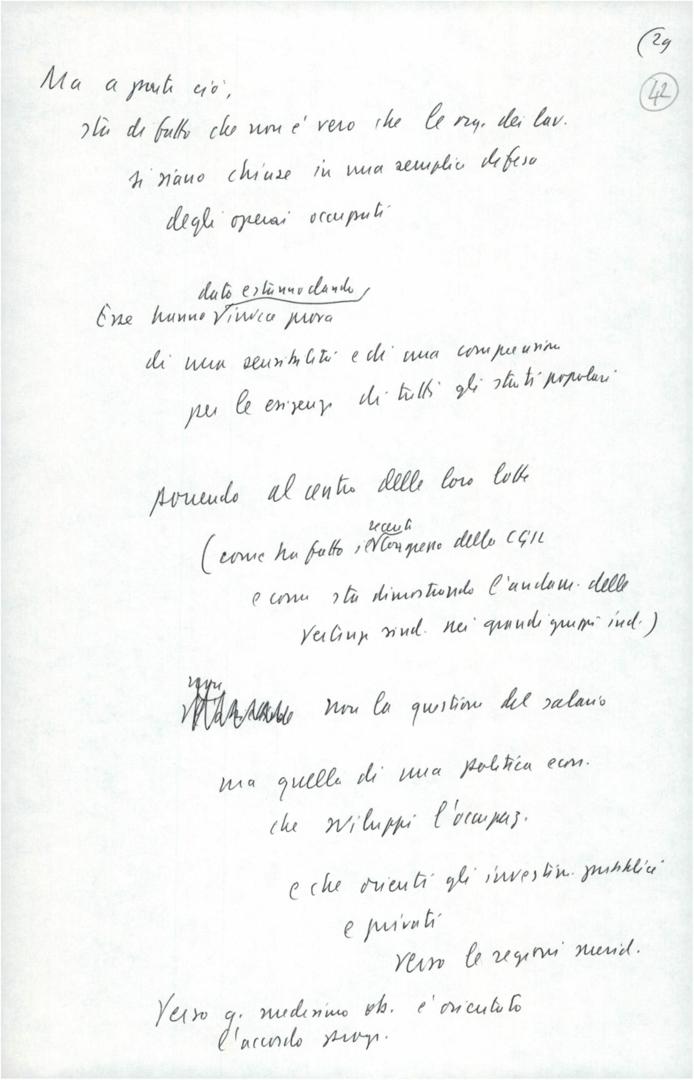 (29
42
Ma a parte ciò,
sta di fatto che non è vero che le org. dei lav.
si siano chiuse in una semplice difesa
degli operai occupati
dato e stanno dando
Esse hanno invece prova
di una sensibilità e di una comprensione
per le esigenze di tutti gli strati popolari
ponendo al centro delle loro lotte
recente
(come ha fatto il Congresso della CGIL
e come sta dimostrando l'andam. delle
vertenze sind. nei grandi gruppi ind.)
non la questione del salario
ma quella di una politica econ.
che sviluppi l'occupaz.
e che orienti gli investim. pubblici
e privati
verso le regioni merid.
Verso q. medesimo ob. è orientato
l'accordo